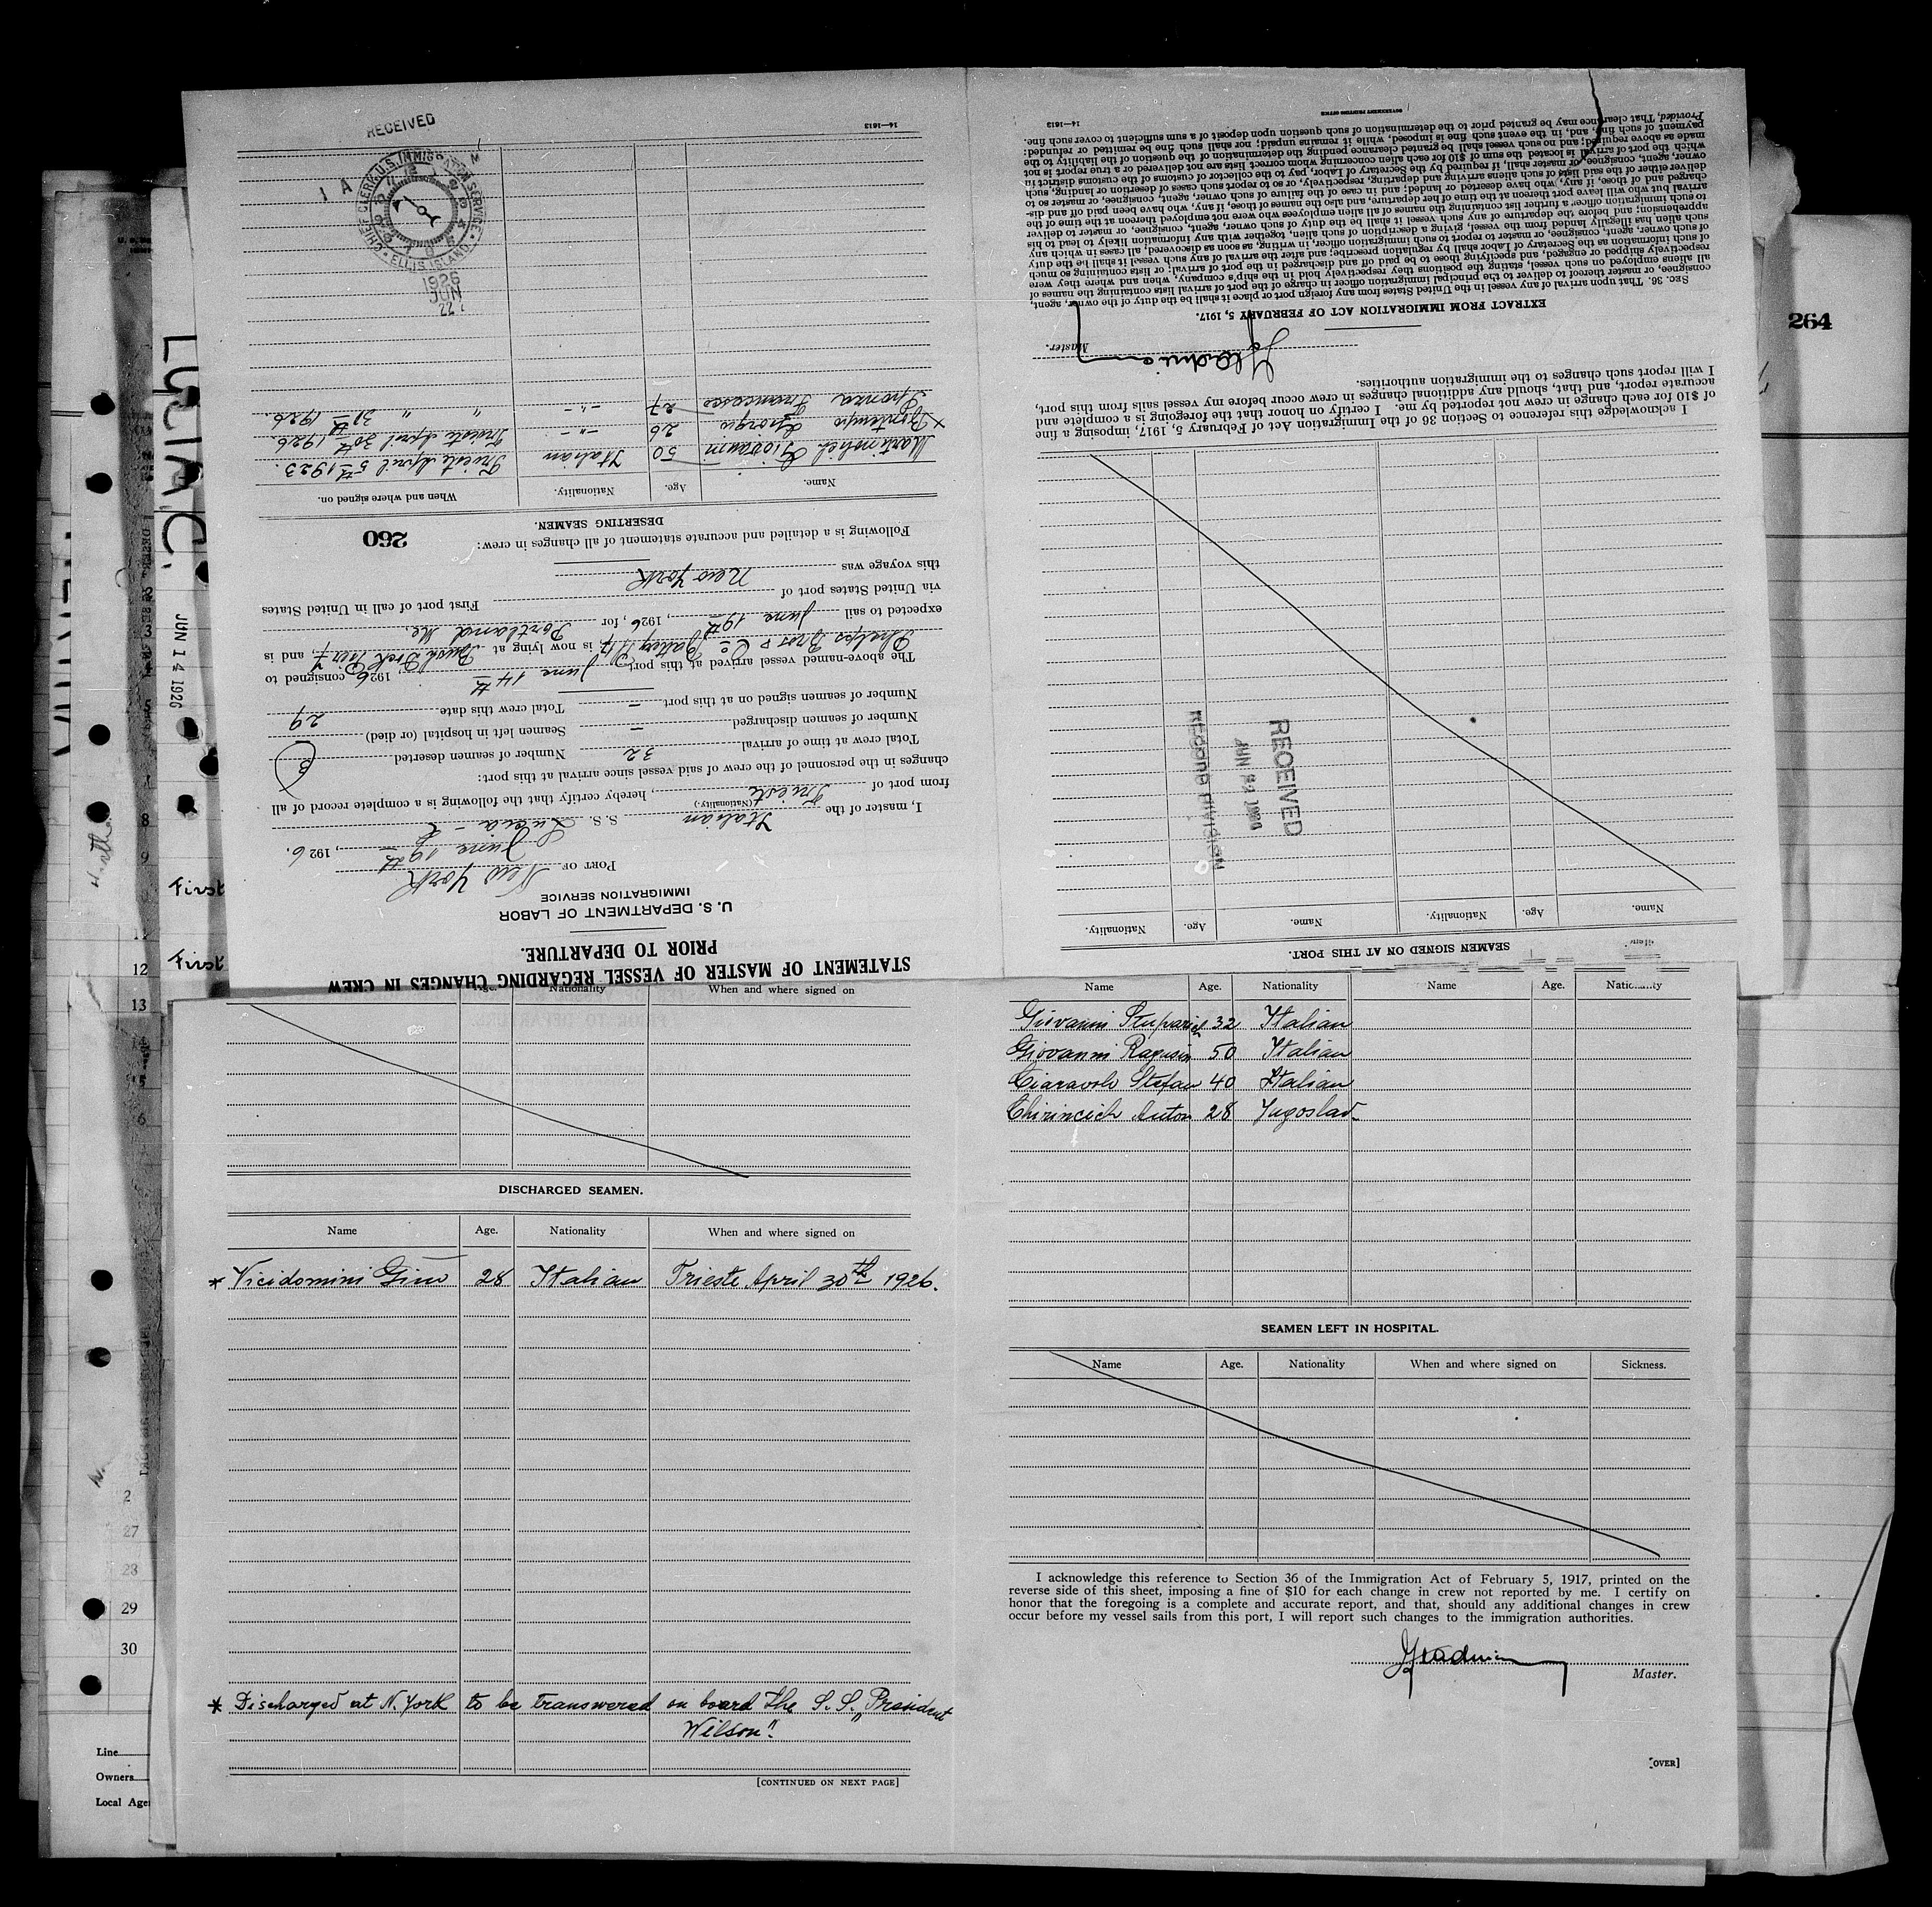 STATEMENT OF MASTER OF VESSEL REGARDING CHANGES IN CREW
PRIOR TO DEPARTURE.
U. S. DEPARTMENT OF LABOR
IMMIGRATION SERVICE
PORT OF New York
June 19th, 1926.
I, master of the Italian S. S. Lucia - C
(Nationality.)
from port of Trieste, hereby certify that the following is a complete record of all
changes in the personnel of the crew of said vessel since arrival at this port:
Total crew at time of arrival 32 Number of seamen deserted 3
Number of seamen discharged — Seamen left in hospital (or died)
Number of seamen signed on at this port — Total crew this date 29
The above-named vessel arrived at this port June 14th, 1926 consigned to
Phelps Bros & Co Battery 17, is now lying at Bush Dock Pier 7, and is
expected to sail June 19th, 1926, for Portland Me.
via United States port of First port of call in United States
this voyage was New York
Following is a detailed and accurate statement of all changes in crew:
260
DESERTING SEAMEN.
Name. Age. Nationality. When and where signed on.
Martinolich Giovanni 50 Italian Trieste April 5th 1923.
x Bontempo Giorgio 26 -"- Trieste April 30th 1926.
Sponza Francesco 27 -"- " " 31th 1926.
14—1613
RECEIVED
CHIEF CLERK U.S. IMMIGRATION SERVICE
ELLIS ISLAND
1926
JUN
22
SEAMEN SIGNED ON AT THIS PORT.
Name. Age. Nationality. Name. Age. Nationality.
RECEIVED
JUN 22 1926
RECORD DIVISION
I acknowledge this reference to Section 36 of the Immigration Act of February 5, 1917, imposing a fine
of $10 for each change in crew not reported by me. I certify on honor that the foregoing is a complete and
accurate report, and that, should any additional changes in crew occur before my vessel sails from this port,
I will report such changes to the immigration authorities.
Master.
EXTRACT FROM IMMIGRATION ACT OF FEBRUARY 5, 1917.
SEC. 36. That upon arrival of any vessel in the United States from any foreign port or place it shall be the duty of the owner, agent,
consignee, or master thereof to deliver to the principal immigration officer in charge of the port of arrival lists containing the names of
all aliens employed on such vessel, stating the positions they respectively hold in the ship's company, when and where they were
respectively shipped or engaged, and specifying those to be paid off and discharged in the port of arrival; or lists containing so much
of such information as the Secretary of Labor shall by regulation prescribe; and after the arrival of any such vessel it shall be the duty
of such owner, agent, consignee, or master to report to such immigration officer, in writing, as soon as discovered, all cases in which any
such alien has illegally landed from the vessel, giving a description of such alien, together with any information likely to lead to his
apprehension; and before the departure of any such vessel it shall be the duty of such owner, agent, consignee, or master to deliver
to such immigration officer a further list containing the names of all alien employees who were not employed thereon at the time of the
arrival but who will leave port thereon at the time of her departure, and also the names of those, if any, who have been paid off and dis-
charged and of those, if any, who have deserted or landed; and in case of the failure of such owner, agent, consignee, or master so to
deliver either of the said lists of such aliens arriving and departing, respectively, or so to report such cases of desertion or landing, such
owner, agent, consignee, or master shall, if required by the Secretary of Labor, pay to the collector of customs of the customs district in
which the port of arrival is located the sum of $10 for each alien concerning whom correct lists are not delivered or a true report is not
made as above required; and no such vessel shall be granted clearance pending the determination of the question of the liability to the
payment of such fine, and, in the event such fine is imposed, while it remains unpaid; nor shall such fine be remitted or refunded:
Provided, That clearance may be granted prior to the determination of such question upon deposit of a sum sufficient to cover such fine.
14—1613
GOVERNMENT PRINTING OFFICE
264
JUN 14 1926
First
First
Age. Nationality When and where signed on
DISCHARGED SEAMEN.
Name Age. Nationality When and where signed on
* Vicidomini Gino 28 Italian Trieste April 30th 1926.
* Discharged at N. York to be transwered on board the S. S. "President
Wilson".
[CONTINUED ON NEXT PAGE]
Name Age. Nationality Name Age. Nationality
Giovanni Stuparich 32 Italian
Giovanni Ragusin 50 Italian
Ciaravolo Stefan 40 Italian
Chirincich Anton 28 Jugoslav.
SEAMEN LEFT IN HOSPITAL.
Name Age. Nationality When and where signed on Sickness.
I acknowledge this reference to Section 36 of the Immigration Act of February 5, 1917, printed on the
reverse side of this sheet, imposing a fine of $10 for each change in crew not reported by me. I certify on
honor that the foregoing is a complete and accurate report, and that, should any additional changes in crew
occur before my vessel sails from this port, I will report such changes to the immigration authorities.
Master.
[OVER]
3
8
9
12
13
27
28
29
30
Line
Owners
Local Age